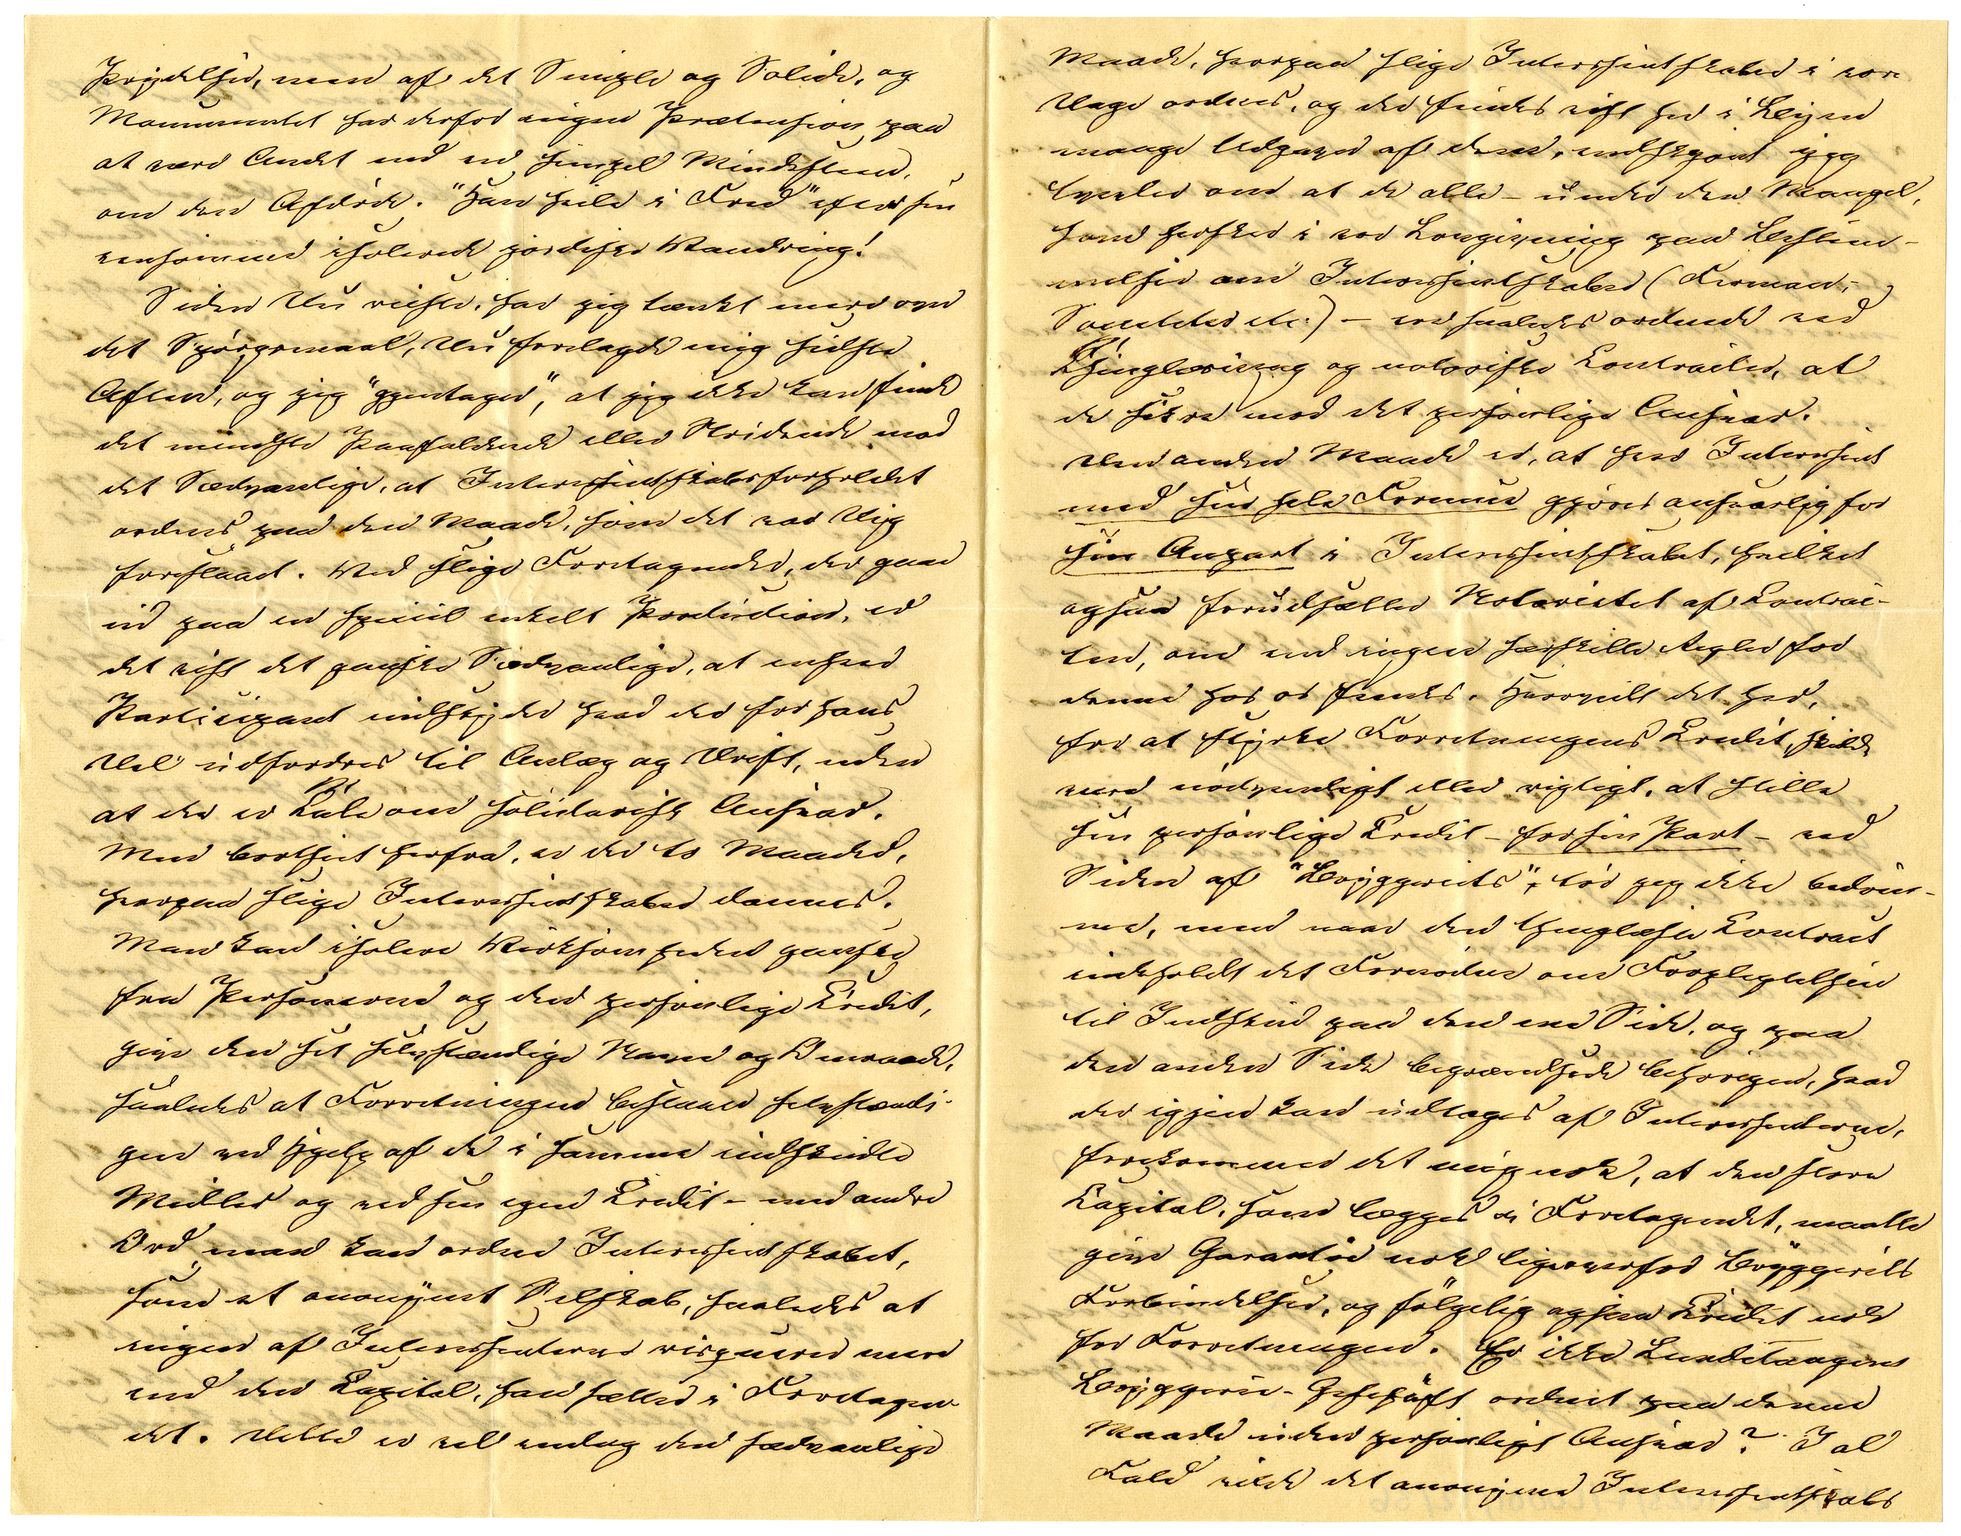 Prydelser, men af det Simple og Solide, og
Monumentet har derfor ingen Prætension paa
at være Andet end en simpel Mindesteen
om den Afdöde. "Han hvile i Fred" efter sin
ensomme isolerede jordiske Vandring!
Siden Du reiste, har jeg tænkt mere over
det Spörgsmaal, Du forelagde mig sidste
Aften, og jeg "gjentager", at jeg ikke kan finde
det mindste Paafaldende eller Stridende mod
det Sædvanlige, at Interessentskabsforholdet
ordnes paa den Maade, som det var Dig
foreslaaet. Ved slige Foretagender, der gaae
ud paa en speciel enkelt Production, er
det vist det ganske Sædvanlige, at enhver
Participant indskyder hvad der for hans
Del udfordres til Anlæg og Drift, uden
at der er Tale om solidarisk Ansvar.
Men bortseet herfra, er der to Maader,
hvorpaa slige Interessentskaber dannes.
Man kan isolere Virksomheden ganske
fra Personerne og den personlige Credit,
give den sit selvstændige Navn og Omraade,
saaledes at Forretningen bestaaer selvstændi-
gen ved Hjelp af de i samme indskudte
Midler og ved sin egen Credit – med andre
Ord, man kan ordne Interessentskabet,
som et anonymt Selskab, saaledes at
ingen af Interessenterne risquerer mere
end den Capital, han sætter i Foretagen-
det. Dette er vel endog den sædvanlige
Maade, hvorpaa slige Interessentskaber i vore
Dage ordnes, og der findes vist her i Byen
mange Udgaver af dem, endskjönt jeg
tvivler om at de alle – under den Mangel,
som hersker i vor Lovgivning paa Bestem-
melser om Interessentskaber (Firmaer,
Societeter etc.) – ere saaledes ordnede ved
Thinglæsning og notoriske Contracter, at
de sikre mod det personlige Ansvar.
Den anden Maade er, at hver Interessent
med sin hele Formue gjöres ansvarlig for
sin Anpart i Interessentskabet, hvilket
ogsaa forudsætter Notoritet af Contrac-
ten, om end ingen særskilte Regler for
denne hos os findes. Hvorvidt det her,
for at styrke Forretningens Credit, skulde
være nödvendigt eller rigtigt, at stille
sin personlige Credit – for sin Part – ved
Siden af "Bryggeriets", tör jeg ikke bedöm-
me, men naar den thinglæste Contract
indeholdt det Fornödne om Forpligtelsen
til Indskud paa den ene Side, og paa
den anden Side begrændsede behörigen, hvad
der igjen kan udtages af Interessenterne,
forekommer det mig nok, at den store
Capital, som lægges i Foretagendet, maatte
give Garantie nok ligeoverfor Bryggeriets
Forbindelser, og fölgelig ogsaa Credit nok
for Forretningen. Er ikke Lundetangens
Bryggerie-Geschäft ordnet paa denne
Maade uden personligt Ansvar? I al
Fald vilde det anonyme Interessentskabs